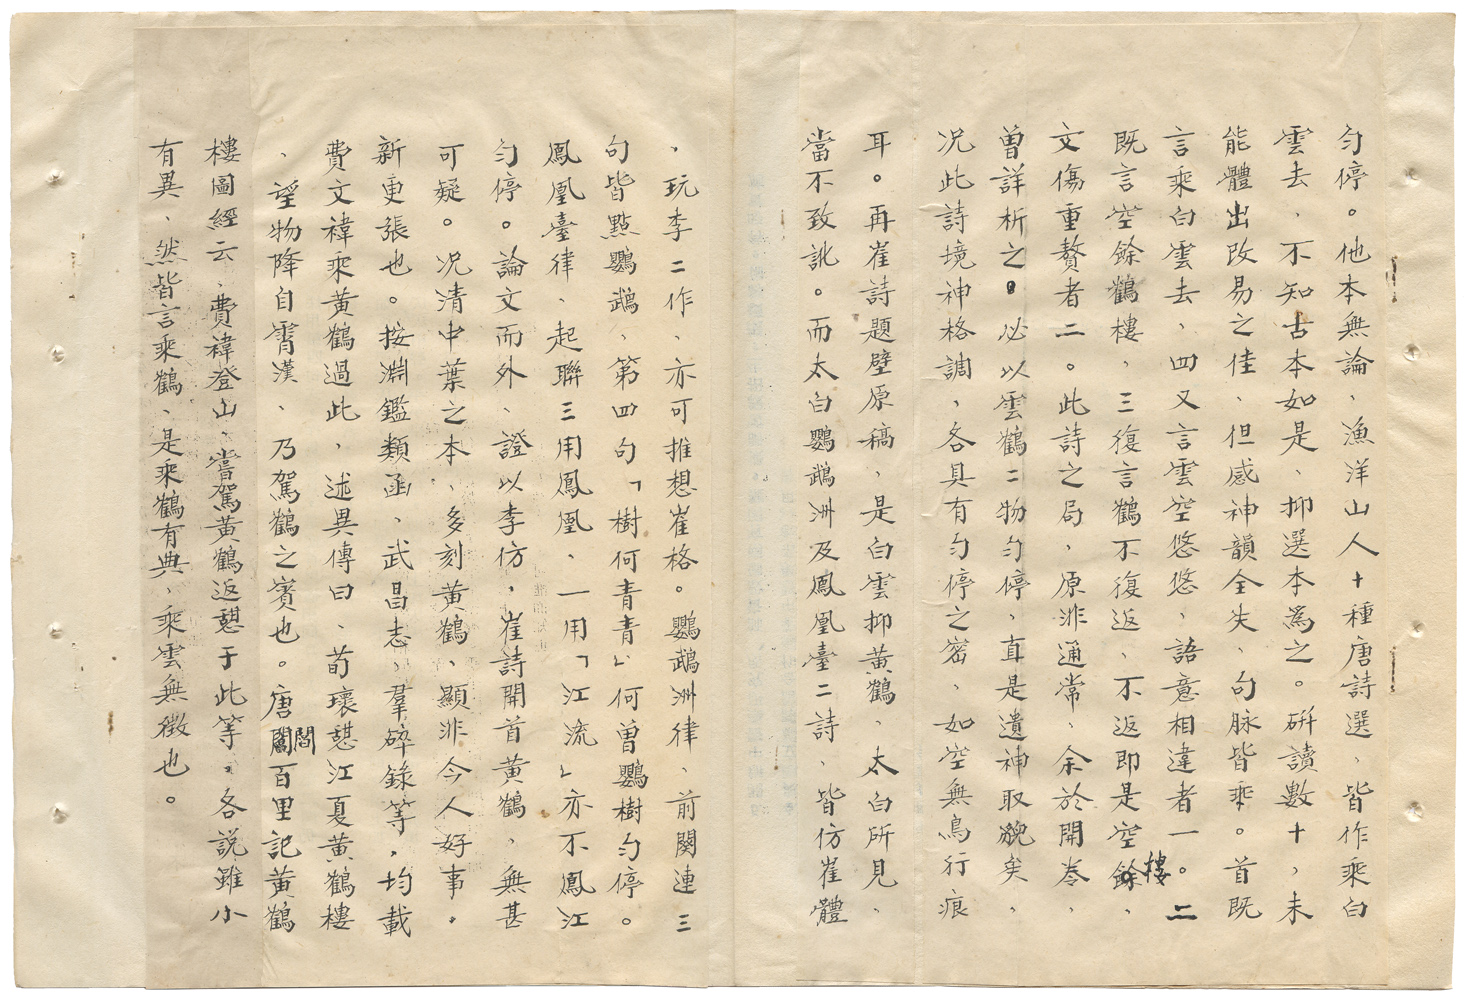 勻停。他本無論、漁洋山人十種唐詩選、皆作乘白
雲去、不知古本如是、抑選本爲之。研讀數十，未
能體出改易之佳、但感神韻全失、句脉皆乖。首既
言乘白雲去、四又言雲空悠悠、語意相違者一。二
既言空餘鶴樓、三復言鶴不復返、不返即是空餘樓、
文傷重贅者二。此詩之局，原非通常、余於開卷、
曾詳析之。必以雲鶴二物勻停、直是遺神取貌矣、
况此詩境神格調，各具有勻停之密、如空無鳥行痕
耳。再崔詩題壁原稿、是白雲抑黃鶴、太白所見、
當不致訛。而太白鸚鵡洲及鳳凰臺二詩、皆仿崔體
、玩李二作、亦可推想崔格。鸚鵡洲律、前関連三
句皆點鸚鵡、第四句「樹何青青」何曾鸚樹勻停。
鳳凰臺律、起聯三用鳳凰、一用「江流」亦不鳳江
勻停。論文而外、證以李仿，崔詩開首黃鶴，無甚
可疑。况清中葉之本、多刻黃鶴、顯非今人好事，
新更張也。按淵鑑類函、武昌志、羣碎錄等，均載
費文禕乘黃鶴過此，述異傳曰、荀瓌憩江夏黃鶴樓
、望物降自霄漢、乃駕鶴之賓也。唐閻百里記黃鶴
樓圖經云、費禕登山、嘗駕黃鶴返憩于此等。各說雖小
有異、然皆言乘鶴、是乘鶴有典，乘雲無徵也。